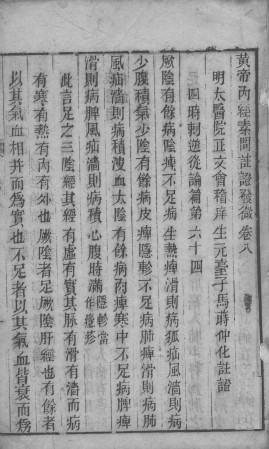 黃帝內經素問註證發微卷八
明太醫院正文會稽庠生元臺子馬蒔仲化註證
四時刺逆從論篇第六十四
厥陰有餘病陰痺不足病生熱痺滑則病狐疝風濇則病
少腹積氣少陰有餘病皮痺隱軫不足病肺痺滑則病肺
風疝濇則病積溲血太陰有餘病肉痺寒中不足病脾痺
滑則病脾風疝濇則病積心腹時滿
隱軫當
作癮疹
此言足之三陰經其經有虛有實其脉有滑有濇而病
有寒有熱有內有外也厥陰者足厥陰肝經也有餘者
以其氣血相并而爲實也不足者以其氣血皆衰而爲